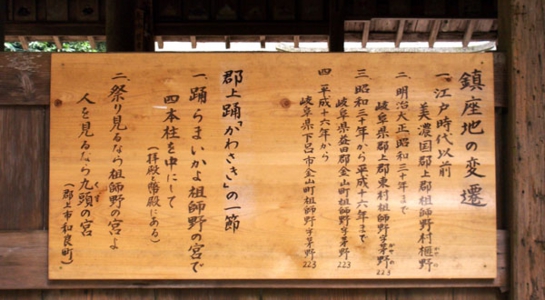 鎮座地の変遷
一、江戸時代以前
美濃国郡上郡祖師野村榧野
かやの
二、明治大正昭和三十年まで
岐阜県郡上郡東村祖師野字茅野
かやの
三、昭和三十年から平成十六年まで
岐阜県益田郡金山町祖師野字茅野223
四、平成十六年から
岐阜県下呂市金山町祖師野字茅野223
郡上踊「かわさき」の一節
一、踊らまいかよ祖師野の宮で
四本柱を中にして
(拝殿と階殿にある)
二、祭り見るなら祖師野の宮よ
人を見るなら九頭の宮
くず
(郡上市和良町)